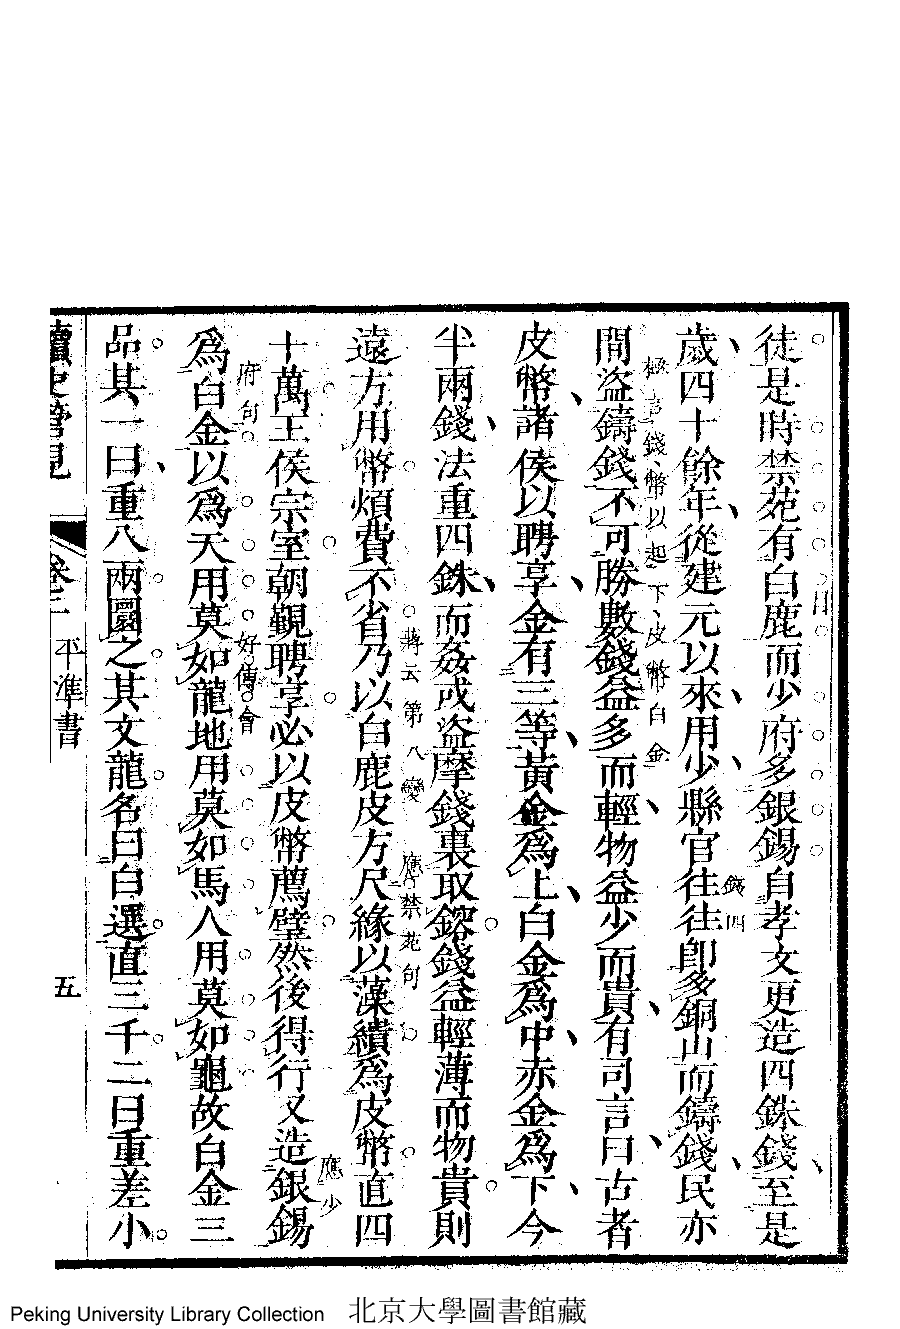 徒是時禁苑有白鹿而少府多銀錫自孝文更造四銖錢至是
歲四十餘年從建元以來用少縣官往往卽多銅山而鑄錢民亦
錢四
間盜鑄錢不可勝數錢益多而輕物益少而貴有司言曰古者
極言錢幣以起下皮幣白金
皮幣諸侯以聘享金有三等黃金爲上白金爲中赤金爲下今
半兩錢法重四銖而姦或盜摩錢裏取鎔錢益輕薄而物貴則
遠方用幣煩費不省乃以白鹿皮方尺緣以藻繢爲皮幣直四
蔣云第八變
應禁苑句
十萬王侯宗室朝覲聘享必以皮幣薦璧然後得行又造銀錫
應少
府句
爲白金以爲天用莫如龍地用莫如馬人用莫如龜故白金三
好傅會
品其一曰重八兩圜之其文龍名曰白選直三千二曰重差小
讀史管見
卷三
平準書
五
Peking University Library Collection 北京大學圖書館藏